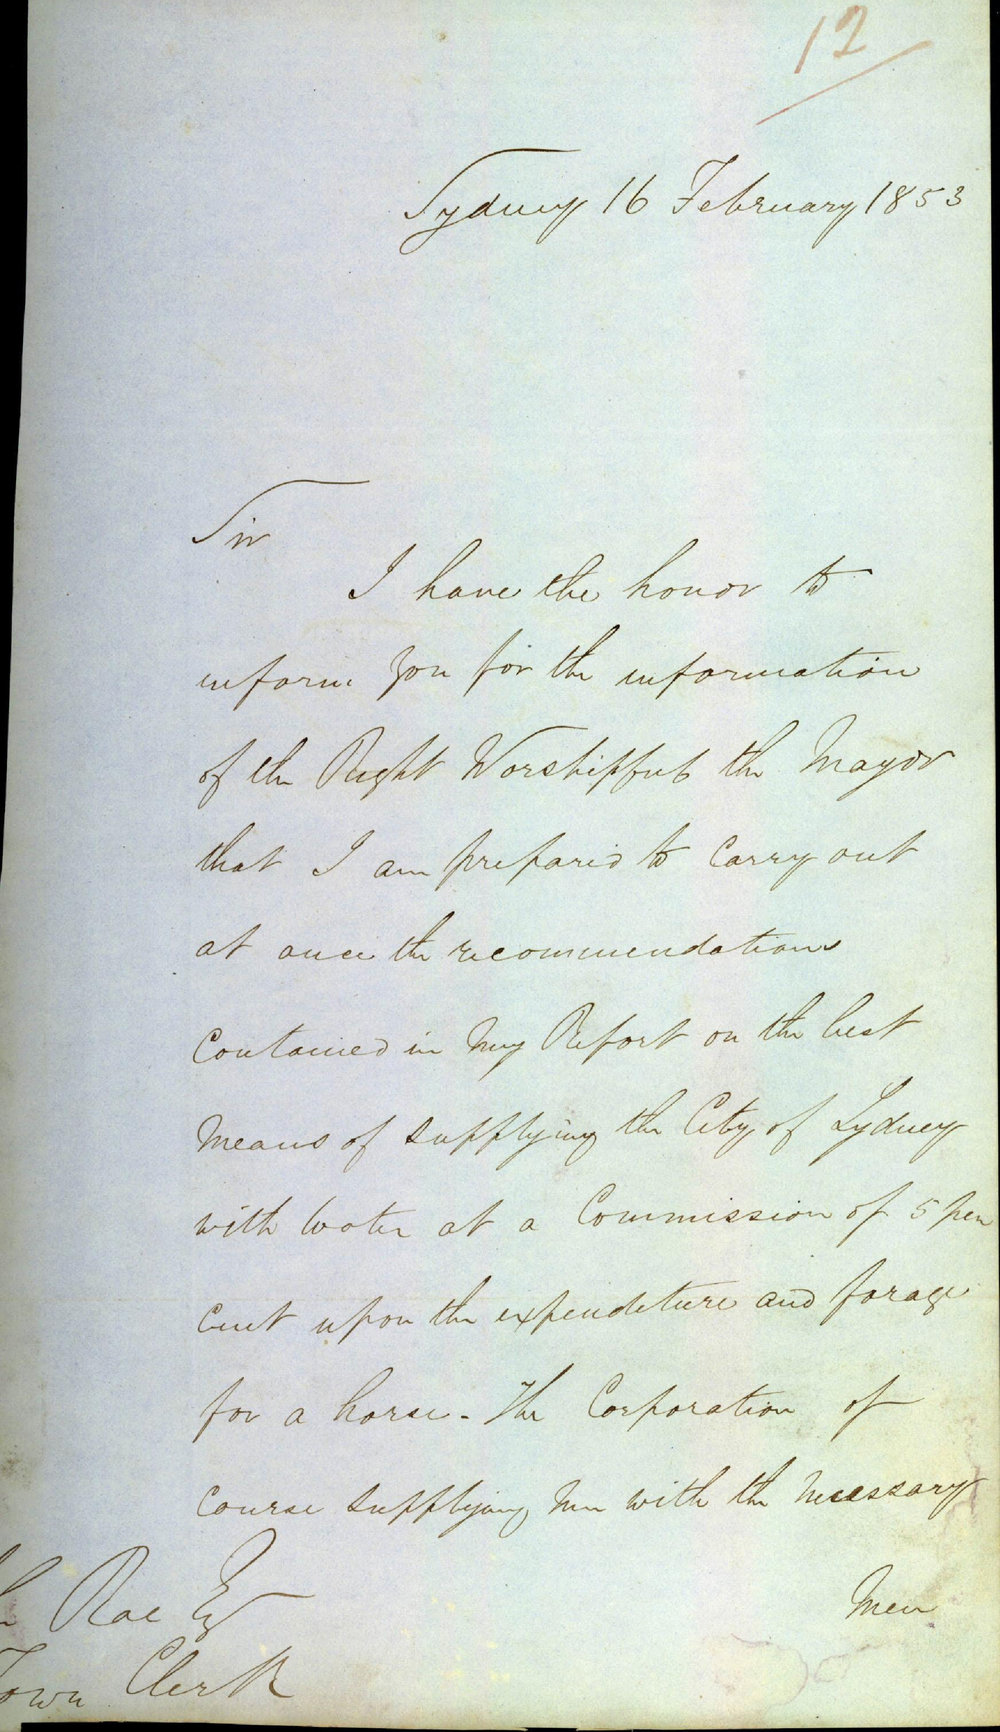 12
Sydney 16 February 1853
Sir
I have the honor to
inform you for the information
of the Right Worshipful the Mayor
that I am prepared to Carry out
at once the recommendations
Contained in My Report on the best
Means of supplying the City of Sydney
with Water at a Commission of 5 per
Cent upon the expenditure and forage
for a horse - The Corporation of
Course supplying Me with the Necessary
Men
h Rae Esq
Town Clerk